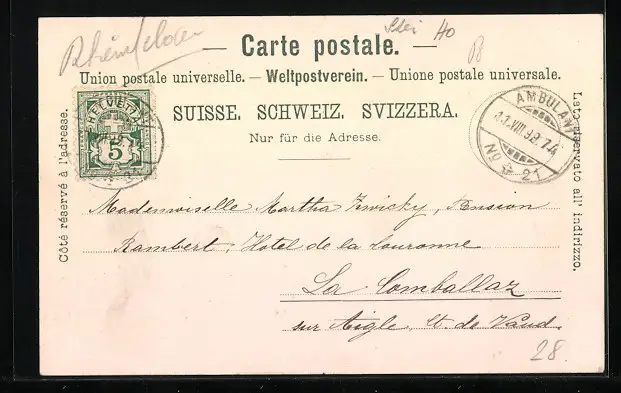 Rheinfelden
Ho
B
— Carte postale. —
Union postale universelle. — Weltpostverein. — Unione postale universale.
SUISSE. SCHWEIZ. SVIZZERA.
Nur für die Adresse.
Côté réservé à l'adresse.
Lato riservato all' indirizzo.
HELVETIA
5
AMBULANT
11.VIII.98.74
No 21
Mademoiselle Martha Zwicky, Pension
Rambert, Hotel de la Couronne
La Comballaz
sur Aigle, Ct. de Vaud.
28.